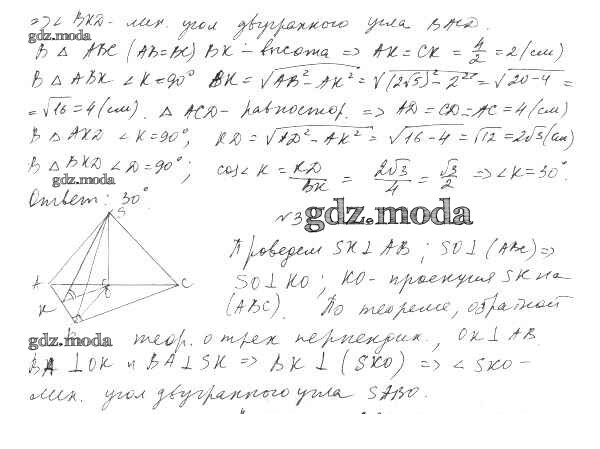 => ∠ BKD - лин. угол двугранного угла BACD.
gdz.moda
В △ ABC (AB=BC) BK - высота => AK = CK = 4/2 = 2 (см)
В △ ABK ∠K=90° BK = √(AB² - AK²) = √((2√5)² - 2²) = √(20-4) =
= √16 = 4 (см). △ ACD - равностор. => AD = CD = AC = 4 (см)
В △ AKD ∠K = 90°, KD = √(AD² - AK²) = √(16-4) = √12 = 2√3 (см)
В △ BKD ∠D = 90°; cos∠K = KD/BK = 2√3/4 = √3/2 => ∠K = 30°.
gdz.moda
Ответ: 30°.
S
№3
gdz.moda
Проведем SK⊥AB; SO⊥(ABC) =>
A
C
SO⊥KO; KO - проекция SK на
K
(ABC). По теореме, обратной
gdz.moda
теор. о трех перпендик., OK⊥AB.
BA⊥OK и BA⊥SK => BK⊥(SKO) => ∠SKO -
лин. угол двугранного угла SABO.